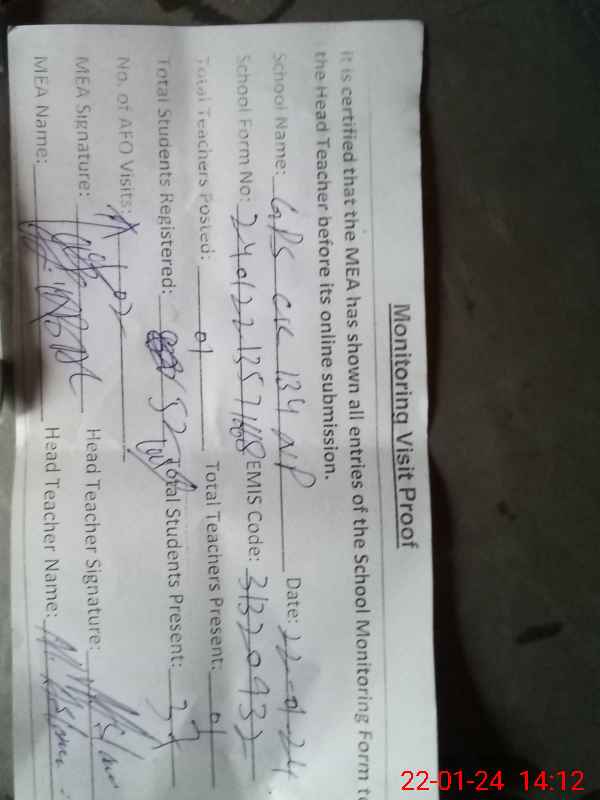 Monitoring Visit Proof
it is certified that the MEA has shown all entries of the School Monitoring Form to
the Head Teacher before its online submission.
School Name: GPS CK 134 NP Date: 22-01-24
School Form No: EMIS Code: 31320932
Total Teachers Posted: 01 Total Teachers Present: 01
Total Students Registered: 52 Total Students Present: 37
No. of AEO Visits: 02
MEA Signature: Head Teacher Signature:
MEA Name: Head Teacher Name:
22-01-24 14:12